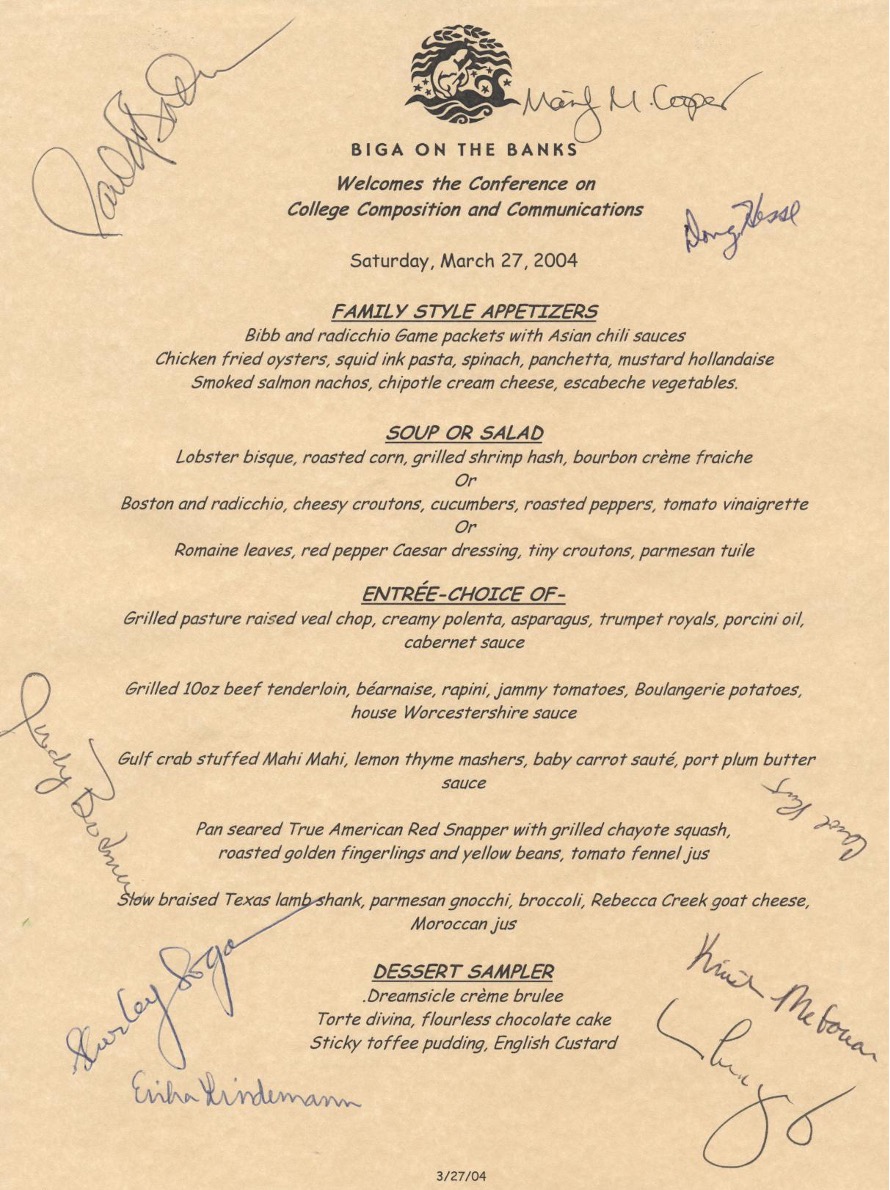 Marilyn M. Cooper
BIGA ON THE BANKS
Welcomes the Conference on
College Composition and Communications
Doug Hesse
Saturday, March 27, 2004
FAMILY STYLE APPETIZERS
Bibb and radicchio Game packets with Asian chili sauces
Chicken fried oysters, squid ink pasta, spinach, panchetta, mustard hollandaise
Smoked salmon nachos, chipotle cream cheese, escabeche vegetables.
SOUP OR SALAD
Lobster bisque, roasted corn, grilled shrimp hash, bourbon crème fraiche
Or
Boston and radicchio, cheesy croutons, cucumbers, roasted peppers, tomato vinaigrette
Or
Romaine leaves, red pepper Caesar dressing, tiny croutons, parmesan tuile
ENTRÉE-CHOICE OF-
Grilled pasture raised veal chop, creamy polenta, asparagus, trumpet royals, porcini oil,
cabernet sauce
Grilled 10oz beef tenderloin, béarnaise, rapini, jammy tomatoes, Boulangerie potatoes,
house Worcestershire sauce
Gulf crab stuffed Mahi Mahi, lemon thyme mashers, baby carrot sauté, port plum butter
sauce
Judy
Carol
Pan seared True American Red Snapper with grilled chayote squash,
roasted golden fingerlings and yellow beans, tomato fennel jus
Slow braised Texas lamb shank, parmesan gnocchi, broccoli, Rebecca Creek goat cheese,
Moroccan jus
Shirley Logan
DESSERT SAMPLER
.Dreamsicle crème brulee
Torte divina, flourless chocolate cake
Sticky toffee pudding, English Custard
Erika Lindemann
3/27/04